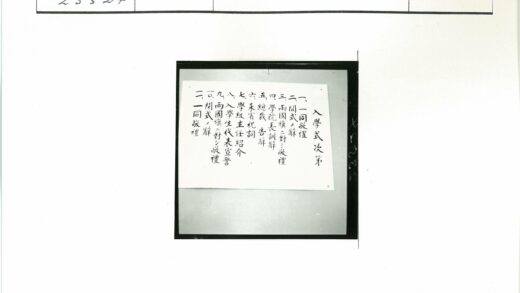 入學式次第
一、一同敬禮
二、開式ノ辭
三、兩國旗ニ對シ敬禮
四、學院長訓辭
五、總裁告辭
六、來賓祝詞
七、學級主任紹介
八、入學生代表宣誓
九、兩國旗ニ對シ敬禮
一〇、閉式ノ辭
一一、一同敬禮